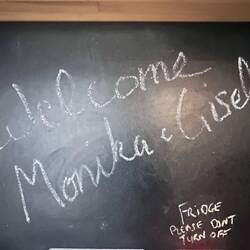 Welcome
Monika & Gisel
FRIDGE
PLEASE DON'T
TURN OFF